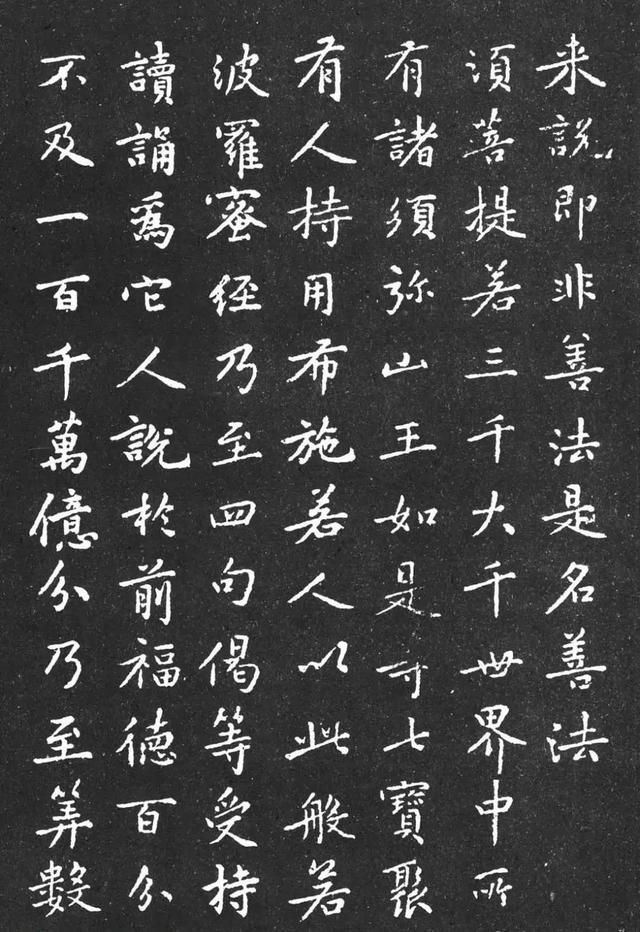 来說即非善法是名善法
須菩提若三千大千世界中所
有諸須弥山王如是等七寶聚
有人持用布施若人以此般若
波羅蜜經乃至四句偈等受持
讀誦爲它人說於前福德百分
不及一百千萬億分乃至筭數